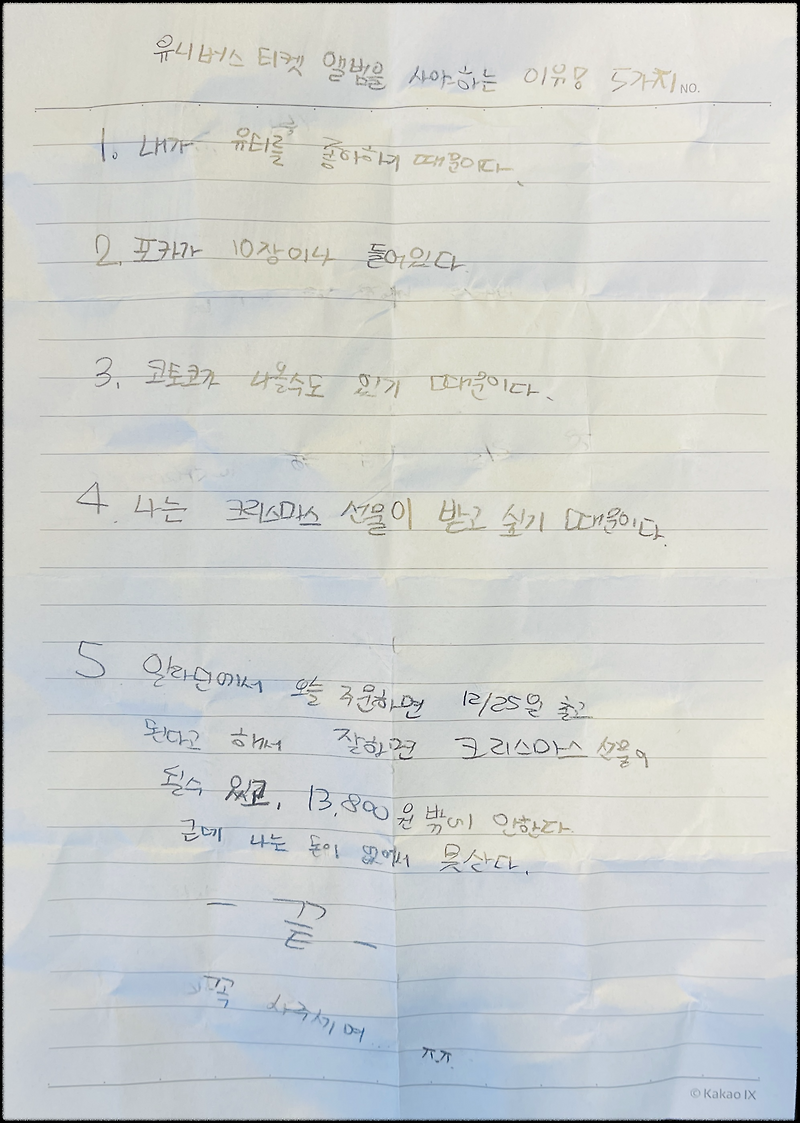 유니버스 티켓 앨범을 사야하는 이유 5가지 NO.
1. 내가 유티를 좋아하기 때문이다.
2. 포카가 10장이나 들어있다.
3. 코토코가 나올수도 있기 때문이다.
4. 나는 크리스마스 선물이 받고 싶기 때문이다.
5 알라딘에서 오늘 주문하면 12/25일 출고
된다고 해서 잘하면 크리스마스 선물이
될수 있고, 13,800원 밖에 안한다.
근데 나는 돈이 없어서 못산다.
- 끝 -
꼭 사주기여
ㅠ.ㅠ
© Kakao IX